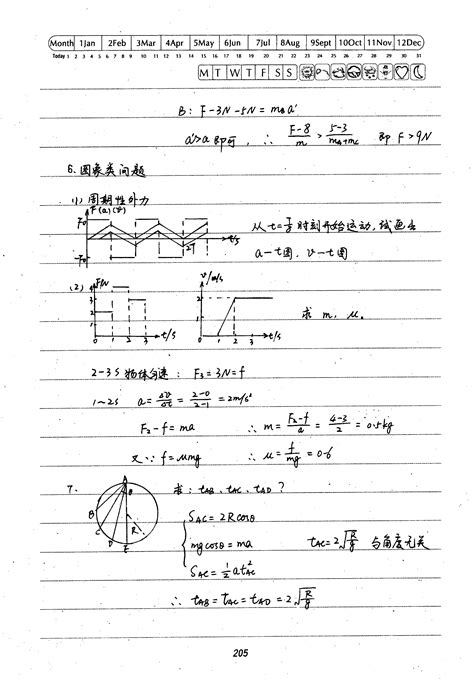 Month 1Jan 2Feb 3Mar 4Apr 5May 6Jun 7Jul 8Aug 9Sept 10Oct 11Nov 12Dec
Today 1 2 3 4 5 6 7 8 9 10 11 12 13 14 15 16 17 18 19 20 21 22 23 24 25 26 27 28 29 30 31
M T W T F S S
B: F-3N-5N=mBa'
a'>a 即可, ∴ (F-8)/m > (5-3)/(mA+mC) 即 F>9N
6.图象类问题
(1)周期性外力
F(a)(v)
F0
-F0
2T
t/s
从t=T/2时刻开始运动,试画出
a-t图,v-t图
(2) F/N
4
3
2
1
0 1 2 3 t/s
v/m/s
2
1
0 1 2 3 t/s
求 m, μ。
2-3s 物体匀速: F3=3N=f
1~2s a=Δv/Δt=(2-0)/(2-1)=2m/s²
F2-f=ma ∴ m=(F2-f)/a=(4-3)/2=0.5kg
又∵ f=μmg ∴ μ=f/mg=0.6
7.
A
B
C
D
E
θ
R
求: tAB、tAC、tAD?
SAC=2Rcosθ
mgcosθ=ma tAC=2√(R/g) 与角度无关
SAC=1/2at²AC
∴ tAB=tAC=tAD=2√(R/g)
205